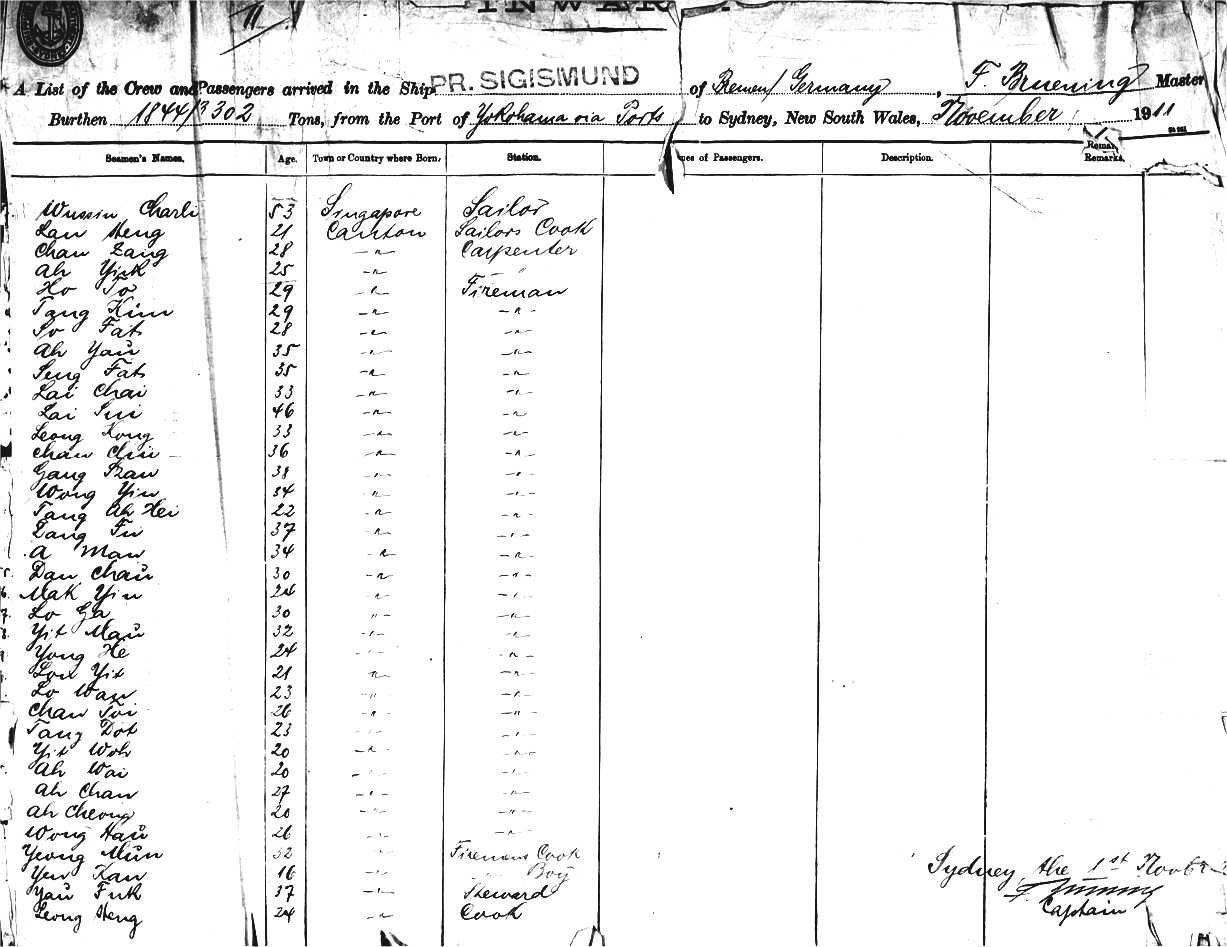 11
INWAR
A List of the Crew and Passengers arrived in the Ship PR. SIGISMUND of Bremen/Germany, F. Bruening Master
Burthen 1844/3302 Tons, from the Port of Yokohama via Ports to Sydney, New South Wales, November 1911
Seamen's Names. Age. Town or Country where Born. Station. nes of Passengers. Description. Remarks.
Wussin Charli 53 Singapore Sailor
Lan Heng 21 Canton Sailors Cook
Chan Zang 28 -"- Carpenter
Ah Yick 25 -"- "
Ho To 29 -"- Fireman
Tang Kim 29 -"- -"-
So Fat 28 -"- -"-
Ah Yaŭ 35 -"- -"-
Seng Fat 35 -"- -"-
Lai Chai 33 -"- -"-
Lai Sui 46 -"- -"-
Leong Kong 33 -"- -"-
Chan Chiu 36 -"- -"-
Gang 38 -"- -"-
Wong Yin 34 -"- -"-
Tang Ah Hei 22 -"- -"-
Zang Fu 37 -"- -"-
A Man 34 -"- -"-
5. Dan Chaŭ 30 -"- -"-
6. Mak Yin 24 -"- -"-
7. Lo Ga 30 -"- -"-
8. Yit Maŭ 32 -"- -"-
Yong He 24 -"- -"-
Lou Yit 21 " -"-
Lo Wan 23 -"- -"-
Chan Toi 26 -"- -"-
Tang Dot 23 -"- -"-
Yit Woh 20 -"- -"-
Ah Wai 20 -"- -"-
Ah Chan 27 -"- -"-
Ah Cheong 20 -"- -"-
Wong Haŭ 26 -"- -"-
Yeong Mŭn 32 -"- Firemens Cook
Yen Kan 16 -"- " Boy
Yaŭ Fuk 37 -"- Steward
Leong Heng 24 -"- Cook
Sydney, the 1st Novbr
Captain